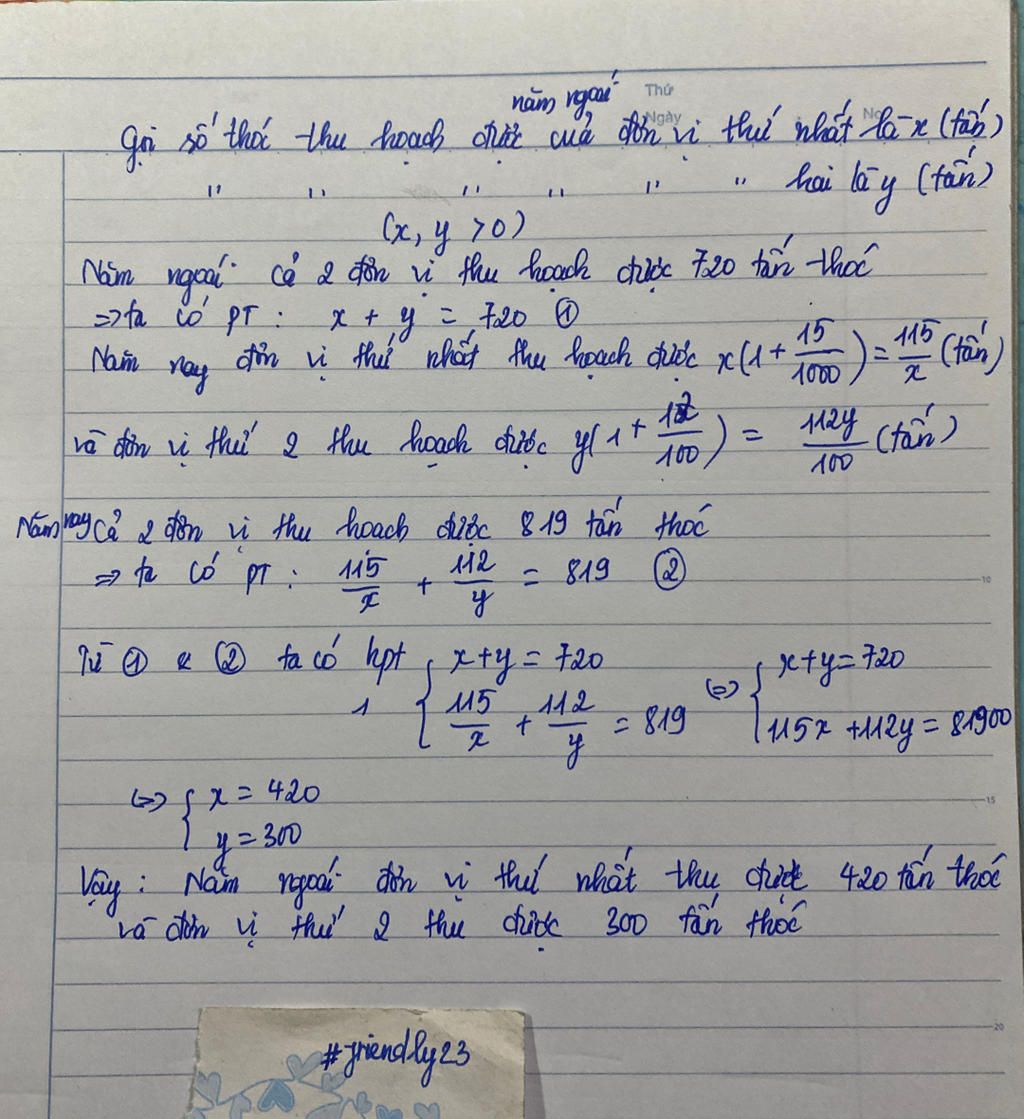 năm ngoái
Thứ
Ngày
No
Gọi số thóc thu hoạch được của đơn vị thứ nhất là x (tấn)
" " " " " " hai là y (tấn)
(x, y > 0)
Năm ngoái cả 2 đơn vị thu hoạch được 720 tấn thóc
=> ta có PT : x + y = 720 ①
Năm nay đơn vị thứ nhất thu hoạch được x(1 + 15/1000) = 115/x (tấn)
và đơn vị thứ 2 thu hoạch được y(1 + 12/100) = 112y/100 (tấn)
Năm nay Cả 2 đơn vị thu hoạch được 819 tấn thóc
=> ta có PT : 115/x + 112/y = 819 ②
10
Từ ① & ② ta có hpt { x+y = 720 <=> { x+y = 720
1 115/x + 112/y = 819 115x + 112y = 81900
<=> { x = 420
15
y = 300
Vậy : Năm ngoái đơn vị thứ nhất thu được 420 tấn thóc
và đơn vị thứ 2 thu được 300 tấn thóc
20
#friendly23